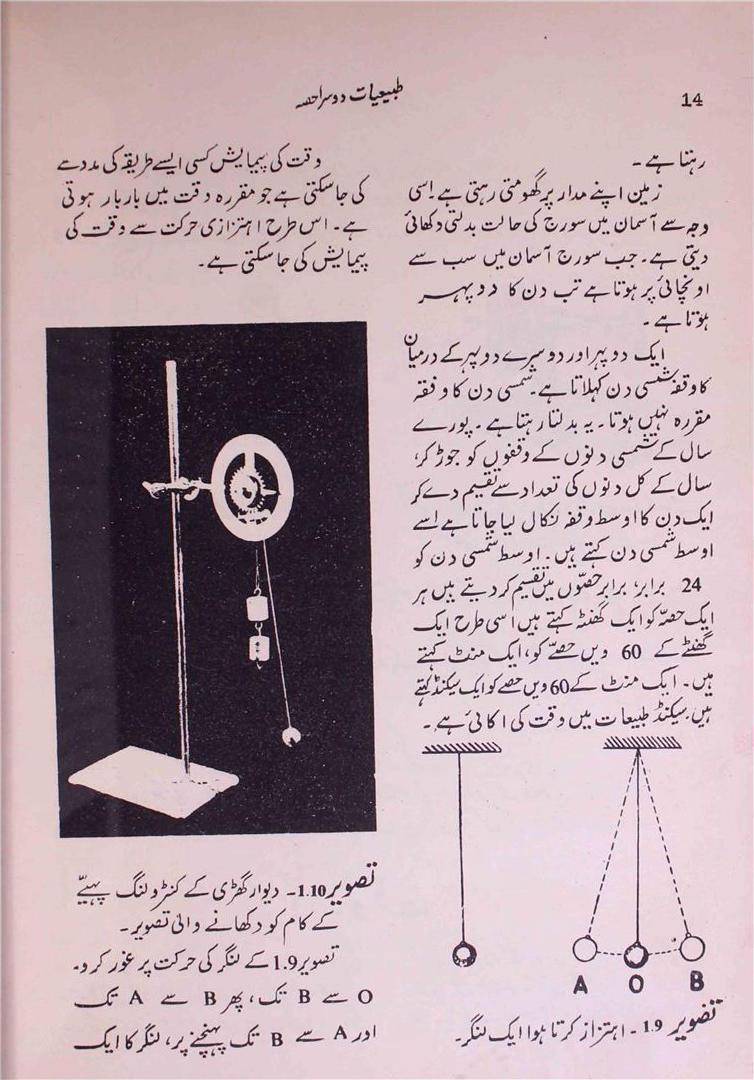 14
طبیعیات دوسرا حصہ
رہتا ہے۔
زمین اپنے مدار پر گھومتی رہتی ہے۔ اسی
وجہ سے آسمان میں سورج کی حالت بدلتی دکھائی
دیتی ہے۔ جب سورج آسمان میں سب سے
اونچائی پر ہوتا ہے تب دن کا دوپہر
ہوتا ہے۔
ایک دوپہر اور دوسرے دوپہر کے درمیان
کا وقفہ شمسی دن کہلاتا ہے۔ شمسی دن کا وقفہ
مقررہ نہیں ہوتا۔ یہ بدلتا رہتا ہے۔ پورے
سال کے شمسی دنوں کے وقفوں کو جوڑ کر،
سال کے کل دنوں کی تعداد سے تقسیم دے کر
ایک دن کا اوسط وقفہ نکال لیا جاتا ہے اسے
اوسط شمسی دن کہتے ہیں۔ اوسط شمسی دن کو
24 برابر، برابر حصّوں میں تقسیم کر دیتے ہیں ہر
ایک حصّہ کو ایک گھنٹہ کہتے ہیں اسی طرح ایک
گھنٹے کے 60 ویں حصّے کو، ایک منٹ کہتے
ہیں۔ ایک منٹ کے 60 ویں حصے کو ایک سیکنڈ کہتے
ہیں۔ سیکنڈ طبیعات میں وقت کی اکائی ہے۔
A O B
تصویر 1.9 - اہتزاز کرتا ہوا ایک لنگر۔
وقت کی پیمایش کسی ایسے طریقہ کی مدد سے
کی جا سکتی ہے جو مقررہ وقت میں بار بار ہوتی
ہے۔ اس طرح اہتزازی حرکت سے وقت کی
پیمایش کی جا سکتی ہے۔
تصویر 1.10۔ دیوار گھڑی کے کنٹرولنگ پہیّے
کے کام کو دکھانے والی تصویر۔
تصویر 1.9 کے لنگر کی حرکت پر غور کرو۔
O سے B تک، پھر B سے A تک
اور A سے B تک پہنچنے پر، لنگر کا ایک